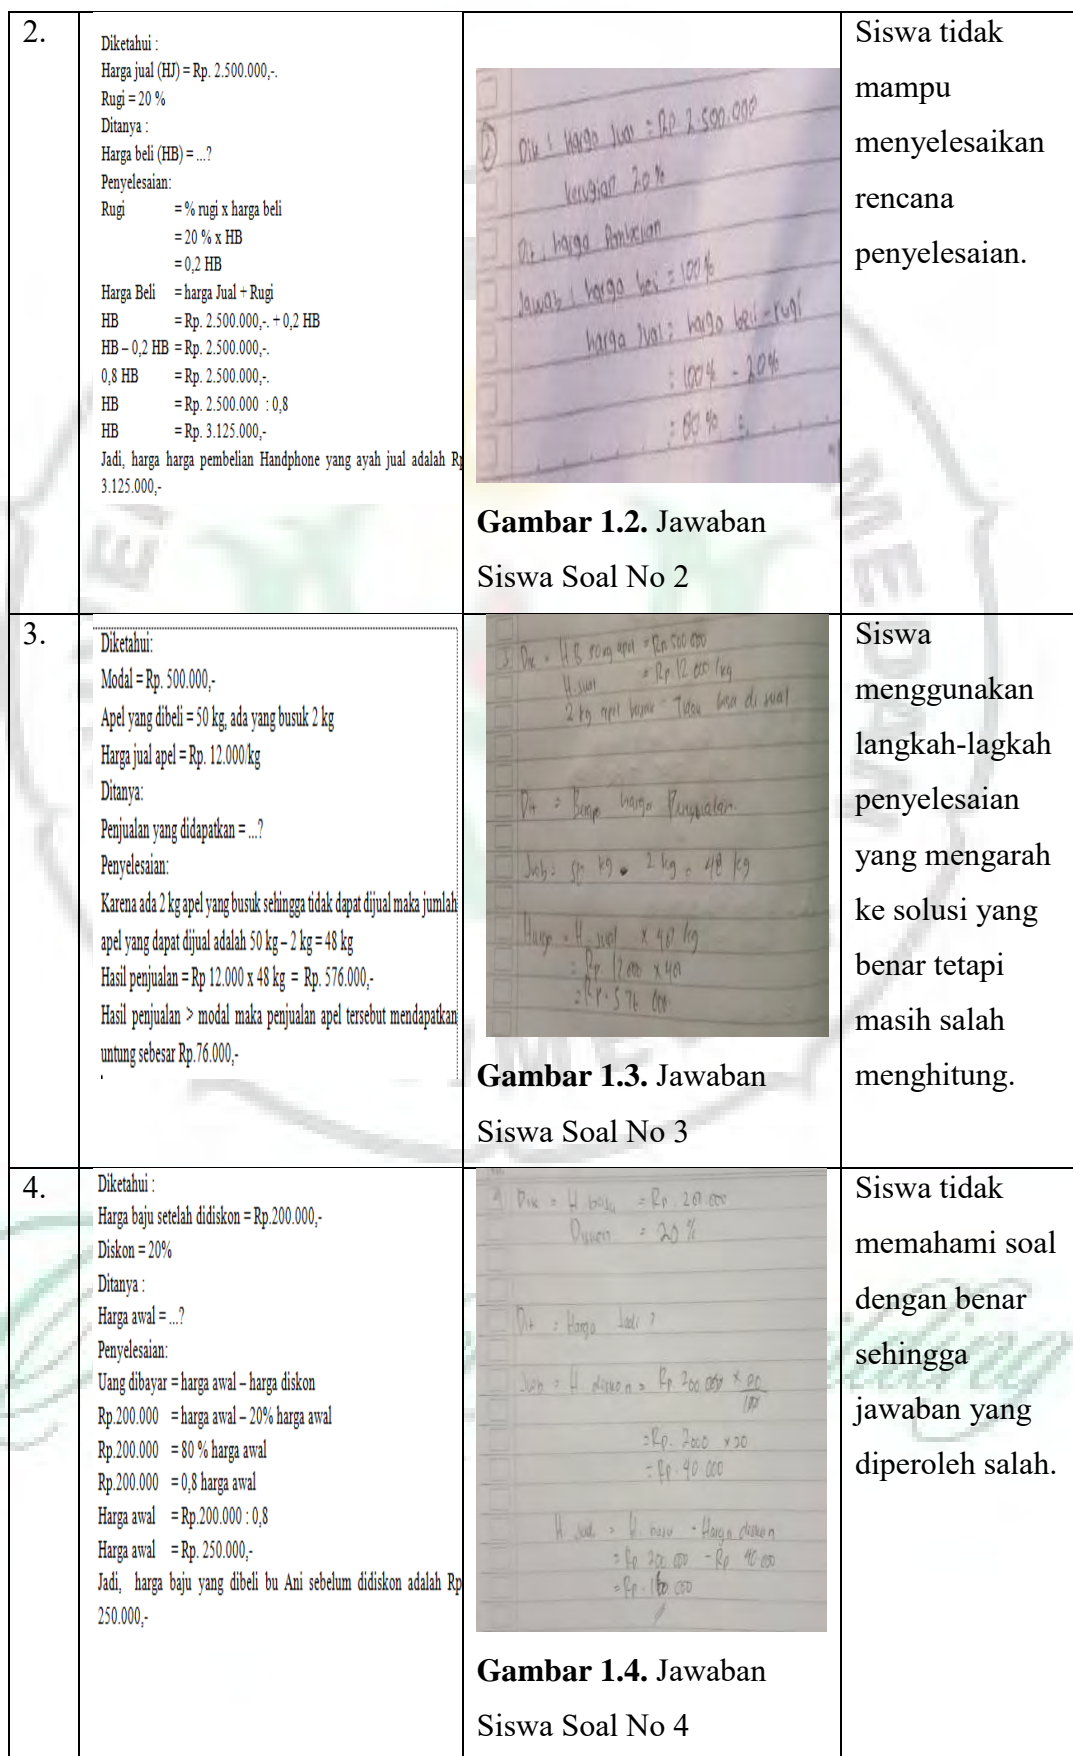 2.
Diketahui :
Harga jual (HJ) = Rp. 2.500.000,-.
Rugi = 20 %
Ditanya :
Harga beli (HB) = ...?
Penyelesaian:
Rugi = % rugi x harga beli
= 20 % x HB
= 0,2 HB
Harga Beli = harga Jual + Rugi
HB = Rp. 2.500.000,-. + 0,2 HB
HB – 0,2 HB = Rp. 2.500.000,-.
0,8 HB = Rp. 2.500.000,-.
HB = Rp. 2.500.000 : 0,8
HB = Rp. 3.125.000,-
Jadi, harga harga pembelian Handphone yang ayah jual adalah Rp
3.125.000,-
2 Dik : harga Jual = Rp 2.500.000
kerugian 20%
Dit : harga Pembelian
Jawab : harga beli = 100%
harga Jual = harga beli - rugi
= 100% - 20%
= 80% =
Gambar 1.2. Jawaban
Siswa Soal No 2
Siswa tidak
mampu
menyelesaikan
rencana
penyelesaian.
3.
Diketahui:
Modal = Rp. 500.000,-
Apel yang dibeli = 50 kg, ada yang busuk 2 kg
Harga jual apel = Rp. 12.000/kg
Ditanya:
Penjualan yang didapatkan = ...?
Penyelesaian:
Karena ada 2 kg apel yang busuk sehingga tidak dapat dijual maka jumlah
apel yang dapat dijual adalah 50 kg – 2 kg = 48 kg
Hasil penjualan = Rp 12.000 x 48 kg = Rp. 576.000,-
Hasil penjualan > modal maka penjualan apel tersebut mendapatkan
untung sebesar Rp.76.000,-
3 Dik = H B 50 kg apel = Rp 500 000
H. Jual = Rp. 12 000 /kg
2 kg apel busuk = Tidak bisa di jual
Dit = Berapa harga Penjualan
Jwb = 50 kg - 2 kg = 48 kg
Harga = H. Jual x 48 kg
= Rp. 12 000 x 48
= Rp. 576 000
Gambar 1.3. Jawaban
Siswa Soal No 3
Siswa
menggunakan
langkah-lagkah
penyelesaian
yang mengarah
ke solusi yang
benar tetapi
masih salah
menghitung.
4.
Diketahui :
Harga baju setelah didiskon = Rp.200.000,-
Diskon = 20%
Ditanya :
Harga awal = ...?
Penyelesaian:
Uang dibayar = harga awal – harga diskon
Rp.200.000 = harga awal – 20% harga awal
Rp.200.000 = 80 % harga awal
Rp.200.000 = 0,8 harga awal
Harga awal = Rp.200.000 : 0,8
Harga awal = Rp. 250.000,-
Jadi, harga baju yang dibeli bu Ani sebelum didiskon adalah Rp
250.000,-
Dik = H baju = Rp. 200.000
= 20 %
Dit = Harga Jadi ?
Jwb = H. diskon = Rp 200 000 x 20
100
= Rp. 2000 x 20
= Rp. 40.000
H. Jadi = H. baju - Harga diskon
= Rp 200.000 - Rp 40.000
= Rp. 160.000
Gambar 1.4. Jawaban
Siswa Soal No 4
Siswa tidak
memahami soal
dengan benar
sehingga
jawaban yang
diperoleh salah.